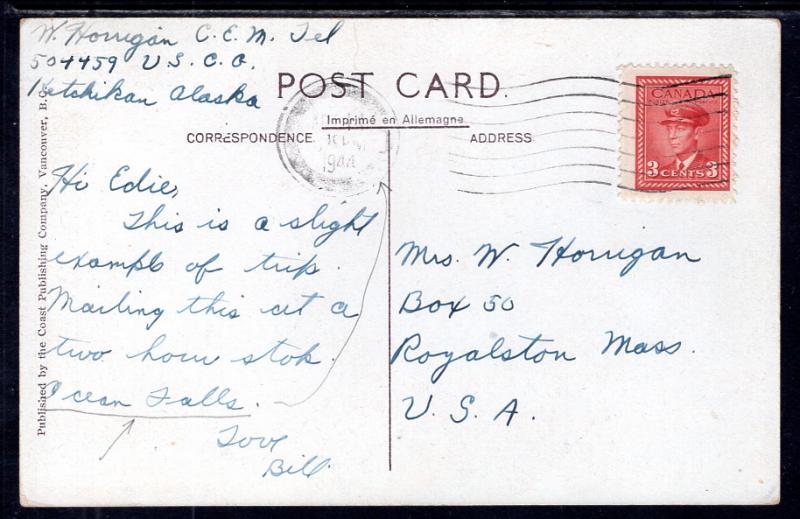 W. Horrigan C.E.M. Tel
504459 U.S.C.G.
Ketchikan Alaska
POST CARD.
Imprimé en Allemagne
CORRESPONDENCE.
ADDRESS.
1944
CANADA
3 CENTS 3
Hi Edie,
This is a slight
example of trip.
Mailing this at a
two hour stop.
Ocean Falls.
Love
Bill
Mrs. W. Horrigan
Box 50
Royalston Mass.
U.S.A.
Published by the Coast Publishing Company, Vancouver, B.C.